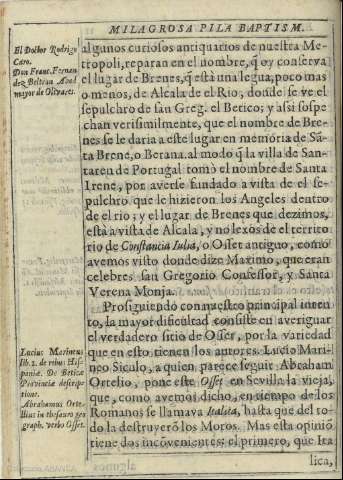 MILAGROSA PILA BAPTISM.
El Doctor Rodrigo
Caro.
Don Franc. Fernan
dez Beltran Abad
mayor de Olivares.
algunos curiosos antiquarios de nuestra Me-
tropoli, reparan en el nombre, q̃ oy conserva
el lugar de Brenes, q̃ està una legua, poco mas
o menos, de Alcala de el Rio, donde se ve el
sepulchro de san Greg. el Betico; y assi sospe
chan verisimilmente, que el nombre de Bre-
nes se le daria a este lugar en memoria de Sã-
ta Brene, o Berana. al modo q̃ la villa de San-
taren de Portugal tomò el nombre de Santa
Irene, por averse fundado a vista de el se-
pulchro que le hizieron los Angeles dentro
de el rio; y el lugar de Brenes que dezimos,
està a vista de Alcala, y no lexos de el territo
rio de Constancia Iulia, o Osset antiguo, como
avemos visto donde dize Maximo, que eran
celebres san Gregorio Confessor, y Santa
Verena Monja.
Prosiguiendo con nuestro principal inten
to, la mayor dificultad consiste en averiguar
el verdadero sitio de Osser, por la variedad
que en esto tienen los autores. Lucio Mari-
neo Siculo, a quien parece seguir Abraham
Ortelio, pone este Osset en Sevilla la vieja,
que, como avemos dicho, en tiempo de los
Romanos se llamava Italica, hasta que del to-
do la destruyerõ los Moros. Mas esta opiniõ
tiene dos incõvenientes: el primero, que Ita
lica,
Lucius Marineus
lib. 2. de rebus His-
paniæ. De Beticæ
Provinciæ descrip-
tione.
Abrahamus Orte-
lius in thesauro geo
graph. verbo Osset.